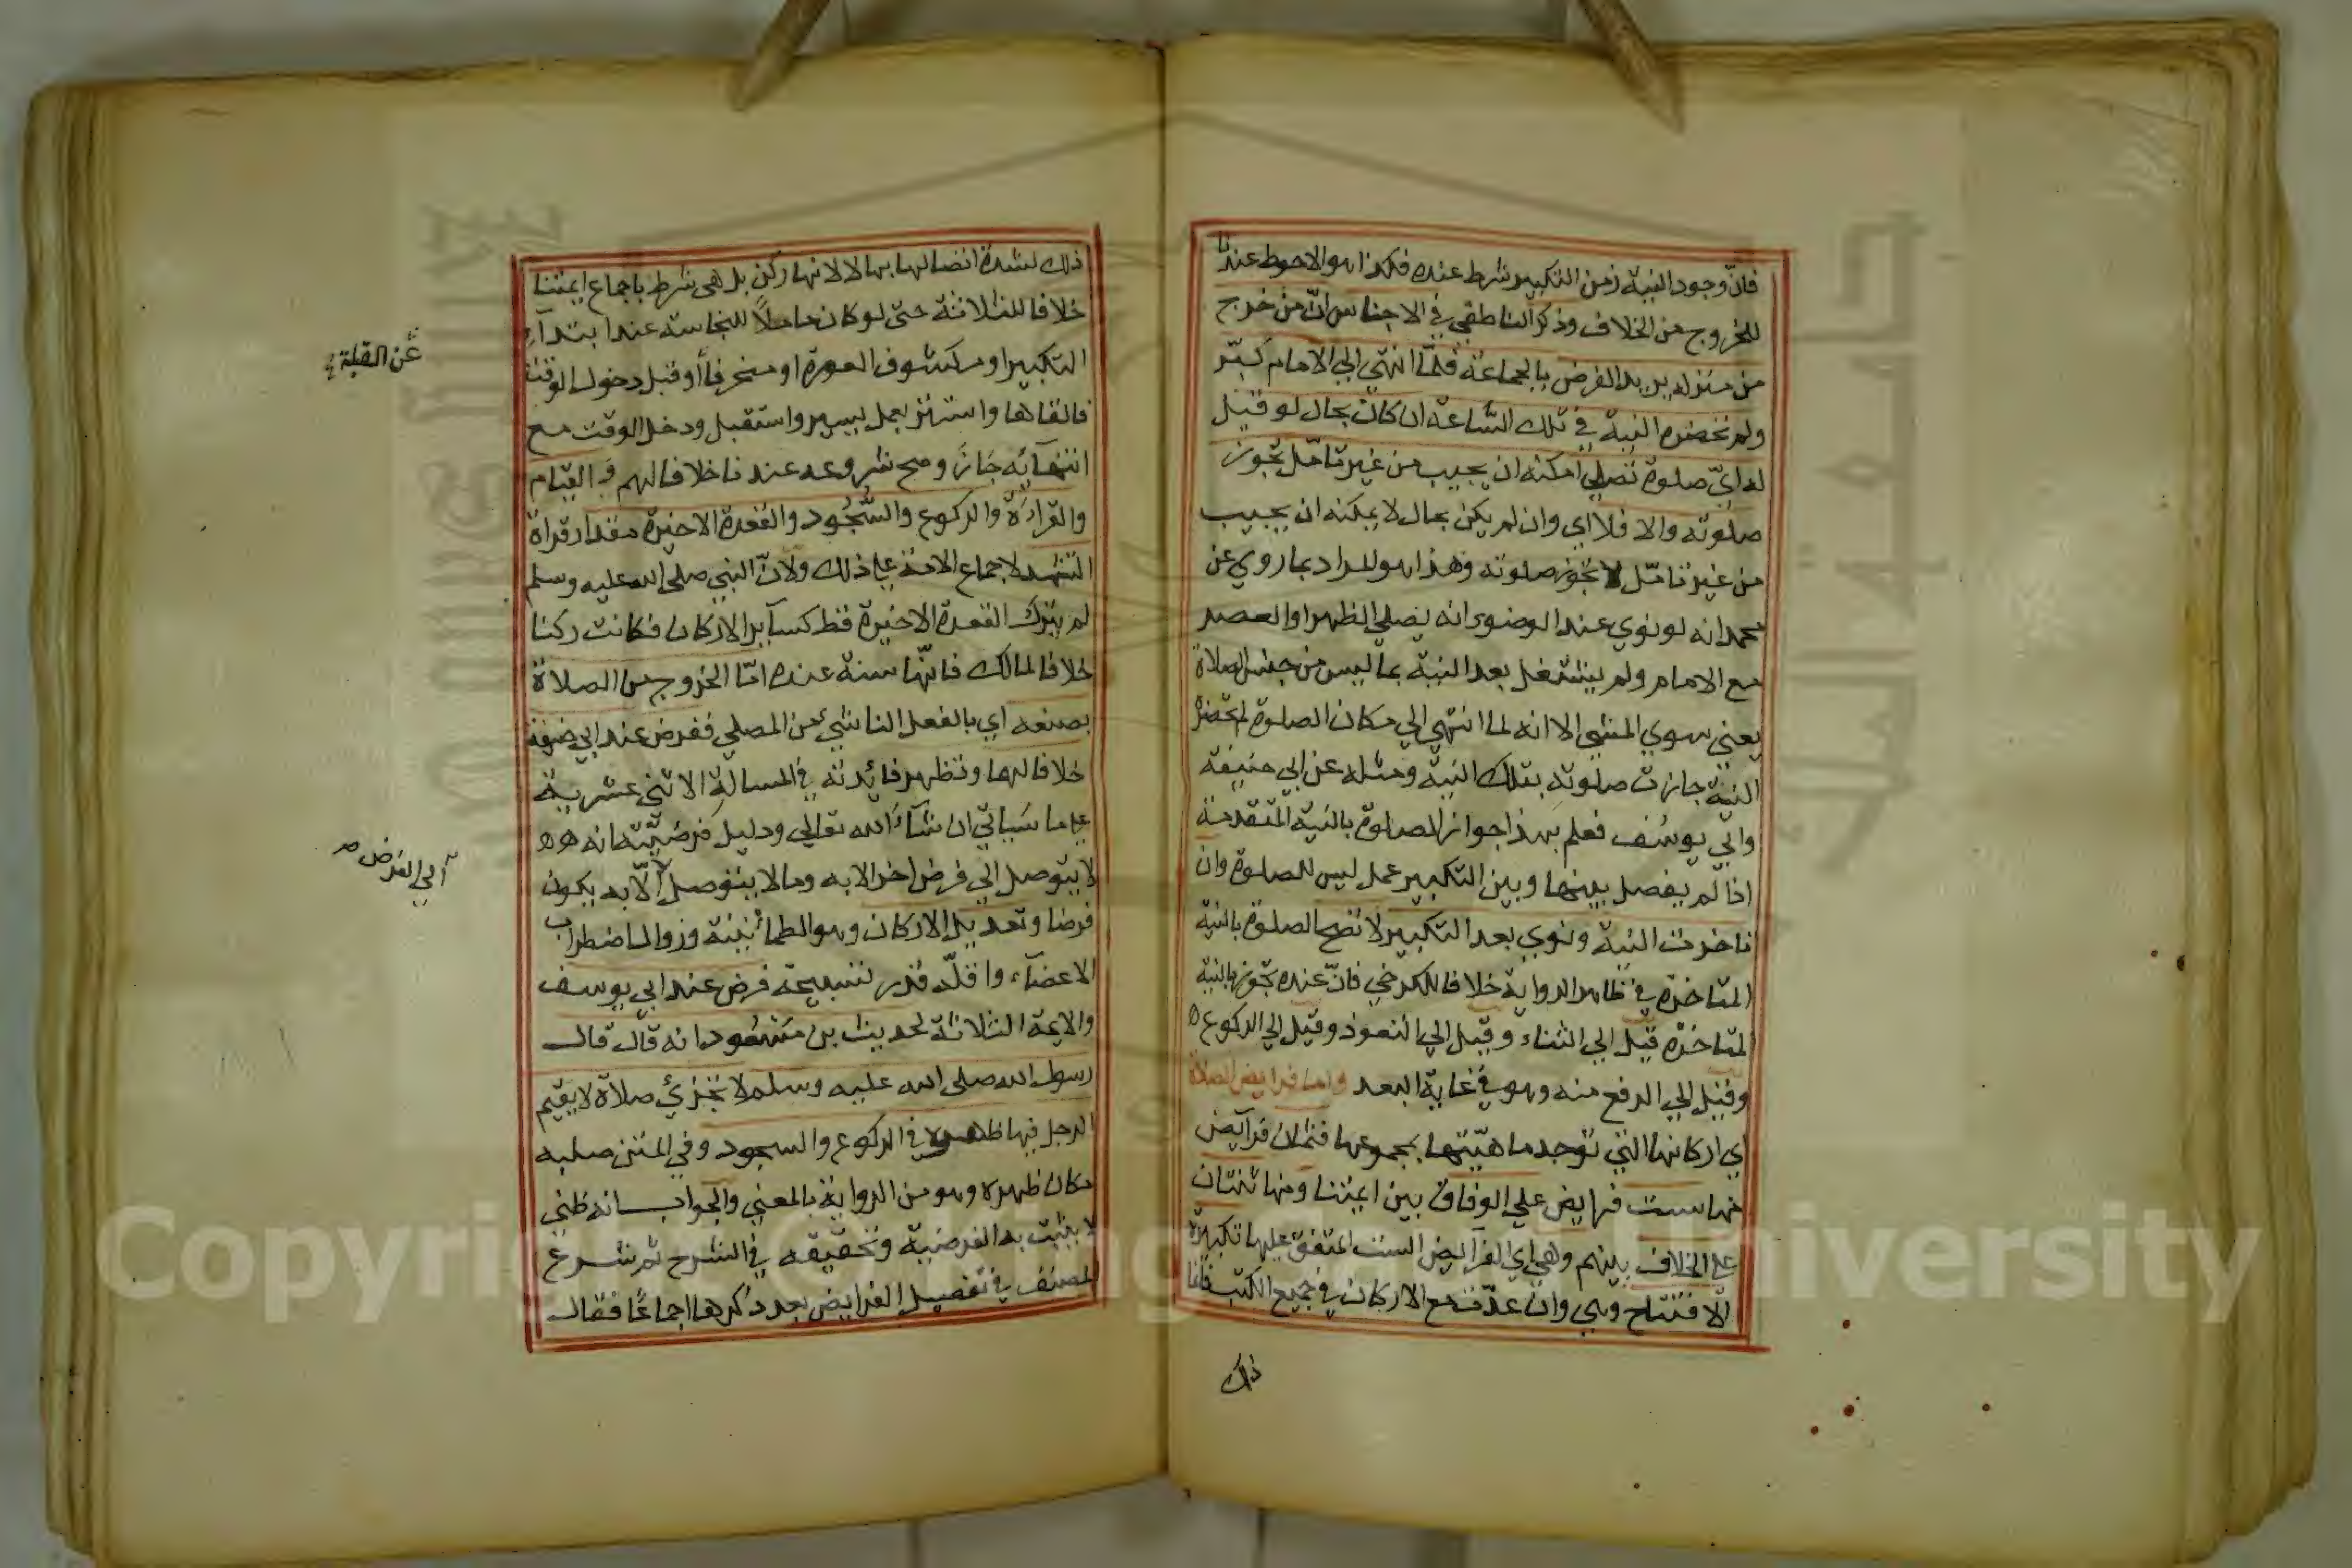 فانّ وجود النية زمن التكبير شرط عنده فكذا هو الاحوط عندنا
للخروج من الخلاف وذكر الناطقي في الاجناس انّ من خرج
من منزله يريد الفرض بالجماعة فلمّا انتهى الي الامام كبّر
ولم تحضره النية في تلك السّاعة ان كان بحال لو قيل
له ايّ صلوة تصلي امكنه ان يجيب من غير تامّل تجوز
صلوته والا فلا اي وان لم يكن بحال لا يمكنه ان يجيب
من غير تامّل لا تجوز صلوته وهذا هو المراد بما روي عن
محمد انه لو نوي عند الوضوء انه يصلي الظهر او العصر
مع الامام ولم يشتغل بعد النية بما ليس من جنس الصلاة
يعني سوي المشي الا انه لما انتهي الي مكان الصلوة لم تحضره
النية جازت صلوته بتلك النية ومثله عن ابي حنيفة
وابي يوسُف فعلم بهذا جواز الصلوة بالنية المتقدمة
اذا لم يفصل بينها وبين التكبير عمل ليس للصلوة وان
تاخرت النية ونوي بعد التكبير لا تصح الصلوة بالنية
المتاخرة في ظاهر الرواية خلافا للكرخي فانّ عنده تجوز بالنية
المتاخرة قيل الي الثناء وقيل الي التعوذ وقيل الي الركوع
وقيل الي الرفع منه وهو في غاية البعد واما فرايض الصلاة
اي اركانها التي توجد ماهيّتها بمجموعها فثمان فرآيض
منها ست فرايض علي الوفاق بين ايمتنا ومنها ثنتان
علي الخلاف بينهم وهي اي الفرآيض الست المتفق عليها تكبيرة
الافتتاح وهي وان عدّت مع الاركان في جميع الكتب فانما
ذلك
ذلك لشدة اتصالها بها لا لانها ركن بل هي شرط باجماع ايمتنا
خلافا للثلاثة حتى لو كان حاملاً للنجاسة عند ابتدآء
التكبير او مكشوف العورة او منحرفاً او قبل دخول الوقت
عن القبلة
فالقاها واستتر بعمل يسير واستقبل ودخل الوقت مع
انتهآئه جَازَ وصح شروعه عندنا خلافا لهم وَالقيام
والقراءَة والركوع والسُّجُود والقعدة الاخيرة مقدار قراة
التشهد لاجماع الامة علي ذلك ولانّ النبي صلى الله عليه وسلم
لم يترك القعدة الاخيرة قط كسآير الاركان فكانت ركنا
خلافا لمالك فانّها سنة عنده امّا الخروج من الصلاة
بصنعه اي بالفعل الناشئ من المصلي ففرض عند ابي حنيفة
خلافا لهما وتظهر فائدته في المسالة الاثني عشرية
علي ما سَياتي ان شآءَ الله تعالي ودليل فرضيّته انه
لا يتوصل الي فرض اخر الا به وما لا يتوصل الّا به يكون
آلي الفرض
فرضا وتعديل الاركان وهو الطمأنينة وزوال اضطراب
الاعضآء واقلّه قدر تسبيحة فرض عند ابي يوسف
والايمة الثلاثة لحديث بن مَسْعُود انه قال قال
رسول الله صلى الله عليه وسلم لا تجزئ صلاة لا يقيم
الرجل فيها ظهره في الركوع والسجود وفي المتن صلبه
مكان ظهره وهو من الرواية بالمعني والجواب انه ظني
لا يثبت به الفرضية وتحقيقه في الشرح ثم شرع
المصنف في تفصيل الفرايض بعد ذكرها اجماعًا فقال